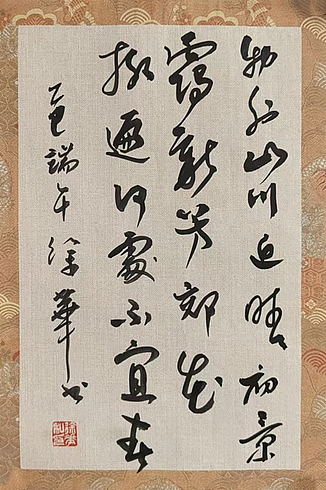 物外山川近晴初景
靄新芳郊花
柳遍何處不宜春
乙巳端午徐華书